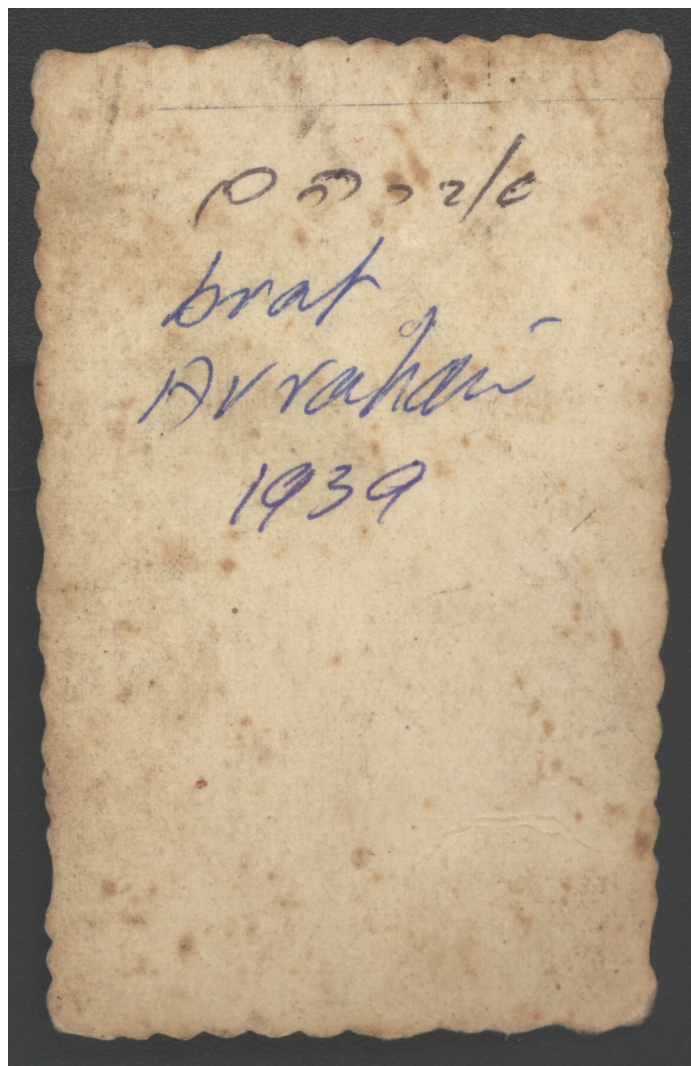 אברהם
brat
Avraham
1939